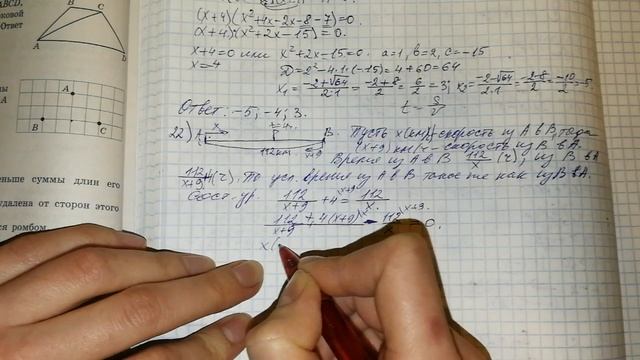 ABCD,
ковой
Ответ
B C
A D
ны
A
A
B C
еньше суммы длин его
удалена от сторон этого
ся ромбом.
(x+4)(x²+4x-2x-8-7)=0.
(x+4)(x²+2x-15)=0.
x+4=0 или x²+2x-15=0. a=1, b=2, c=-15
x=-4 D=2²-4·1·(-15)=4+60=64
x₁=(-2+√64)/(2·1)=(-2+8)/2=6/2=3; x₂=(-2-√64)/(2·1)=(-2-8)/2=-10/2=-5.
Ответ: -5; -4; 3. t=S/V
22) A x B. Пусть x(км/ч)-скорость из A в B, тогда
112км. x+9 (x+9) км/ч-скорость из B в A.
Время из A в B 112/x (ч), из B в A
112/(x+9) (ч). По усл. время из A в B такое же как из B в A.
Сост. ур. 112/(x+9) + 4 = 112/x.
x(